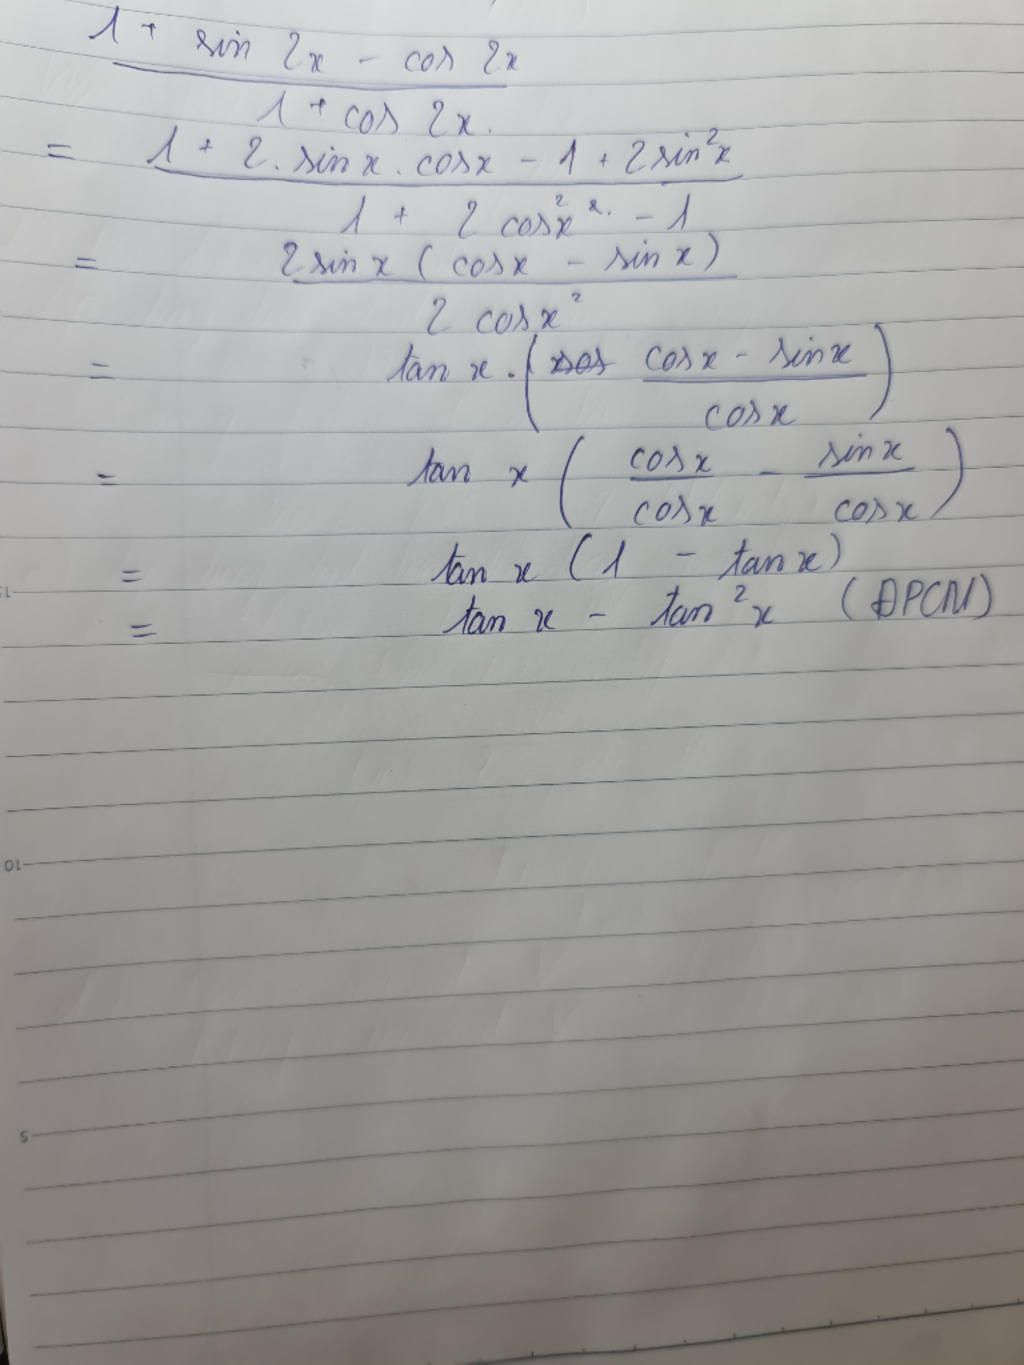 1 + sin 2x - cos 2x
1 + cos 2x.
= 1 + 2. sin x . cosx - 1 + 2sin²x
1 + 2 cos²x - 1
= 2sin x ( cosx - sin x )
2 cosx²
= tan x . ( cosx - sinx )
cosx
= tan x ( cosx - sinx )
cosx cosx
= tan x ( 1 - tanx )
= tan x - tan²x (ĐPCM)
15
10
5